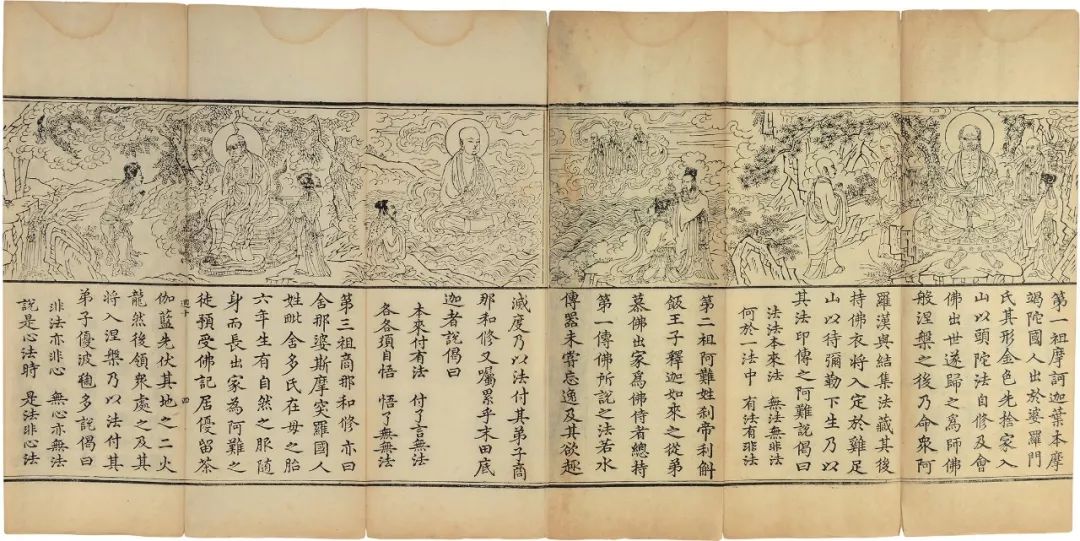 第一祖摩訶迦葉本摩
竭陀國人出於婆羅門
氏其形金色先捨家入
山以頭陀法自修及會
佛出世遂歸之爲師佛
般涅槃之後乃命衆阿
羅漢與結集法藏其後
持佛衣將入定於雞足
山以待彌勒下生乃以
其法印傳之阿難說偈曰
法法本來法 無法無非法
何於一法中 有法有非法
第二祖阿難姓剎帝利斛
飯王子釋迦如來之從弟
慕佛出家爲佛侍者總持
第一傳佛所說之法若水
傳器未嘗忘逸及其欲趣
滅度乃以法付其弟子商
那和修又囑累乎末田底
迦者說偈曰
本來付有法 付了言無法
各各須自悟 悟了無無法
第三祖商那和修亦曰
舍那婆斯摩突羅國人
姓毗舍多氏在母之胎
六年生有自然之服隨
身而長出家為阿難之
徒預受佛記居優留茶
四
伽藍先伏其地之二火
龍然後領衆處之及其
將入涅槃乃以法付其
弟子優波毱多說偈曰
非法亦非心 無心亦無法
說是心法時 是法非心法